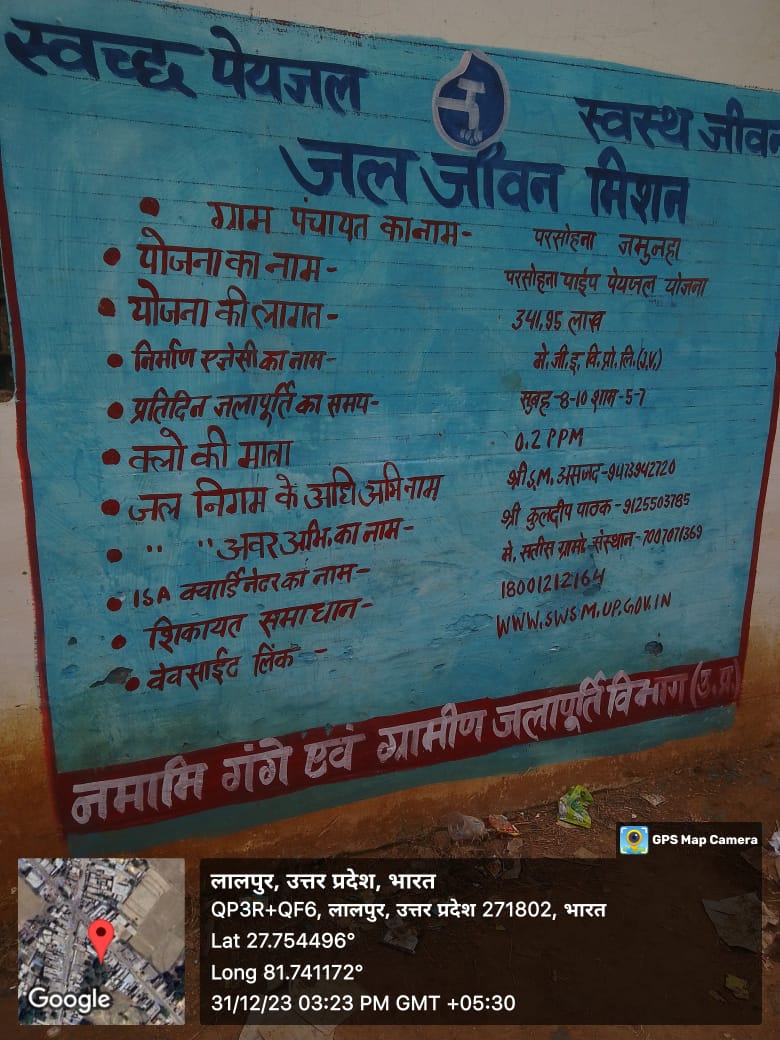 स्वच्छ पेयजल स्वस्थ जीवन
जल जीवन मिशन
• ग्राम पंचायत का नाम- परसोहना जमुनहा
• योजना का नाम- परसोहना पाईप पेयजल योजना
• योजना की लागत- 341.95 लाख
• निर्माण एजेंसी का नाम- मे. जी. इ. वि. प्रो. लि. (J.V.)
• प्रतिदिन जलापूर्ति का समय- सुबह-8-10 शाम-5-7
• क्लो की मात्रा 0.2 PPM
• जल निगम के अधि अभि नाम श्री S.M. असजद-9473942720
• " " अवर अभि. का नाम- श्री कुलदीप पाठक-9125503785
• ISA क्वार्डिनेटर का नाम- मे. सतीस ग्रामो. संस्थान-7007071369
• शिकायत समाधान- 18001212164
• वेवसाईट लिंक - WWW.SWSM.UP.GOV.IN
नमामि गंगे एवं ग्रामीण जलापूर्ति विभाग (उ.प्र.)
GPS Map Camera
लालपुर, उत्तर प्रदेश, भारत
QP3R+QF6, लालपुर, उत्तर प्रदेश 271802, भारत
Lat 27.754496°
Long 81.741172°
31/12/23 03:23 PM GMT +05:30
Google